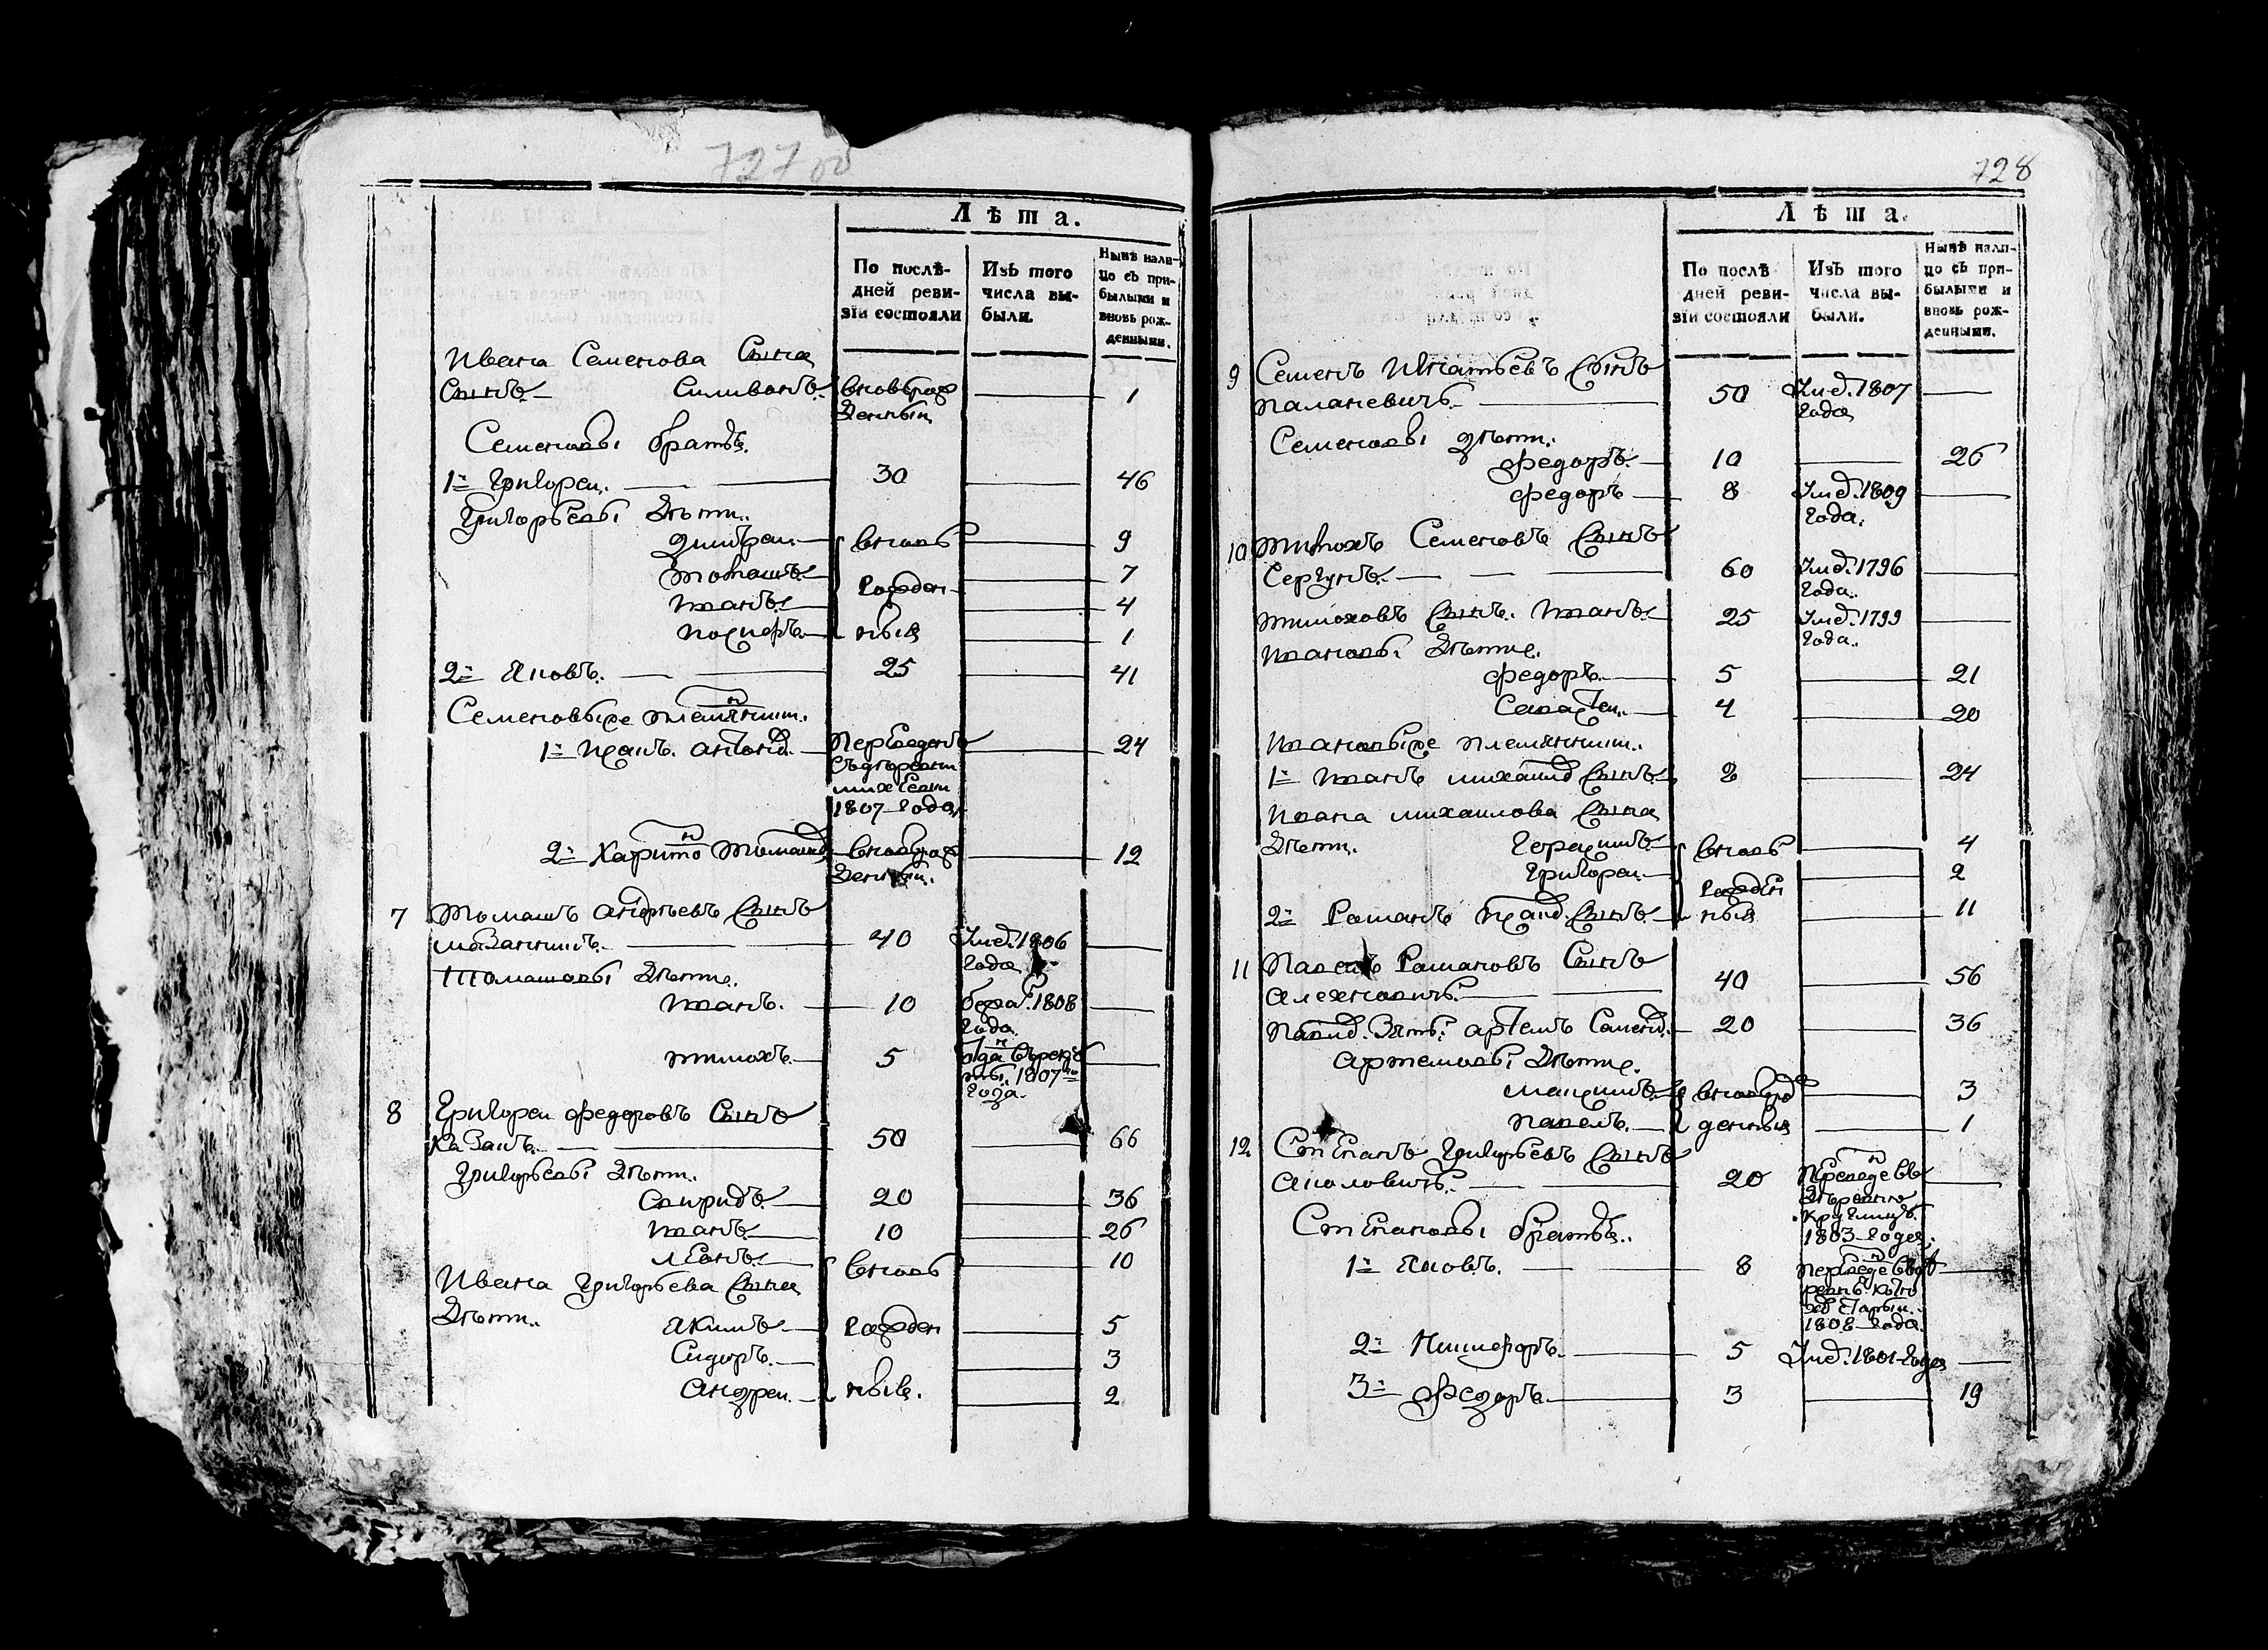 727 об
Лѣта.
По послѣ-
дней реви-
зіи состояли
Изъ того
числа вы-
были.
Нынѣ нали-
цо съ при-
былыми и
вновь рож-
денными.
Ивана Семенова Сына
Сынъ — Силиванъ. вновьрож
денныи — 1
Семеновы братья.
1й Григореи. — 30 — 46
Григорьевы Дѣти.
Дмитреи — вновь — 9
Томашъ — рожден — 7
Иванъ — 4
Иосифъ — ныя — 1
2й Яковъ. — 25 — 41
Семеновые племянники.
1й — Переведенъ — 24
1807 года
2й Харитонъ — вновьрож — 12
денныи.
7 Томашъ Андреевъ Сынъ
— 40 Умер. 1806 —
года
Томашовы Дѣти.
Иванъ. — 10 бежа. 1808 —
года.
Тимохъ. — 5 —
1807го
года.
8 Григореи Федоровъ Сынъ
Казакъ. — 50 — 66
Григорьевы Дѣти.
Спиридо — 20 — 36
Иванъ — 10 — 26
Леонъ — вновь — 10
Ивана Григорьева Сына
Дѣти. Якимъ — рожден — 5
Сидоръ. — 3
Андреи. — ныя. — 2
728
Лѣта.
По послѣ
дней реви-
зіи состояли
Изъ того
числа вы-
были.
Нынѣ нали-
цо съ при-
былыми и
вновь рож-
денными.
9 Семенъ Игнатьевъ Сынъ
Паланевичъ. — 50 Умер. 1807 —
года
Семеновы дѣти.
Федоръ. — 10 — 26
Федоръ — 8 Умер. 1809 —
года.
10 Тимохъ Семеновъ Сынъ
Сергунъ. — 60 Умер. 1796 —
года.
Тимоховъ Сынъ. Иванъ — 25 Умер. 1799 —
года.
Ивановы Дѣти.
Федоръ. — 5 — 21
Савастеи. — 4 — 20
Ивановые племянники.
1й Иванъ михаило Сынъ — 8 — 24
Ивана михаилова Сына
Дѣти. Герасимъ — вновь — 4
Григореи — рожден — 2
2й Романъ Сынъ — ныя — 11
11 Павелъ Романовъ Сынъ
Алехновичъ. — 40 — 56
Зять. Артемъ — 20 — 36
Артемовы Дѣти.
Максимъ — вновьро — 3
Павелъ. — денныя — 1
12 Степанъ Григорьевъ Сынъ
— 20 —
1803 года.
Степановы братья.
1й Яковъ. — 8 —
1808 года.
2й Никифоръ. — 5 Умер. 1801 года —
3й Федоръ — 3 — 19